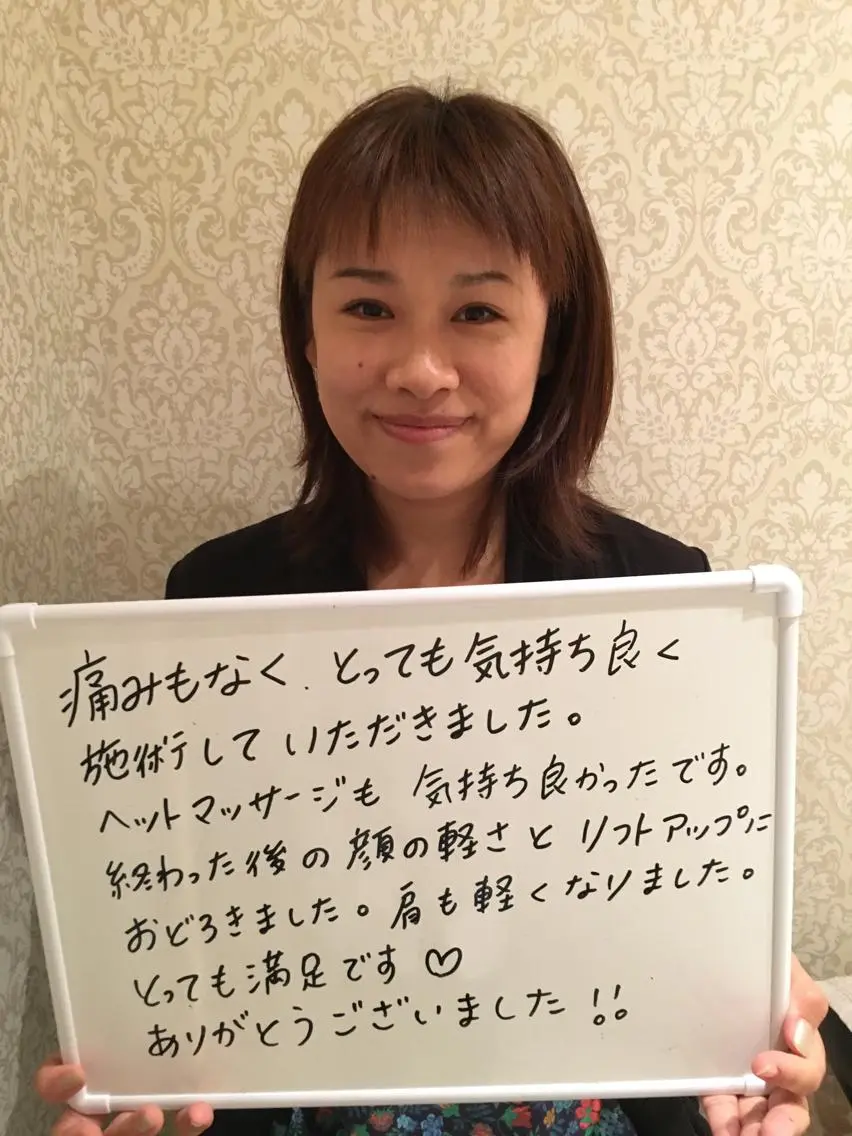 痛みもなく、とっても気持ち良く
施術していただきました。
ヘットマッサージも 気持ち良かったです。
終わった後の顔の軽さと リフトアップに
おどろきました。肩も軽くなりました。
とっても満足です♡
ありがとうございました!!